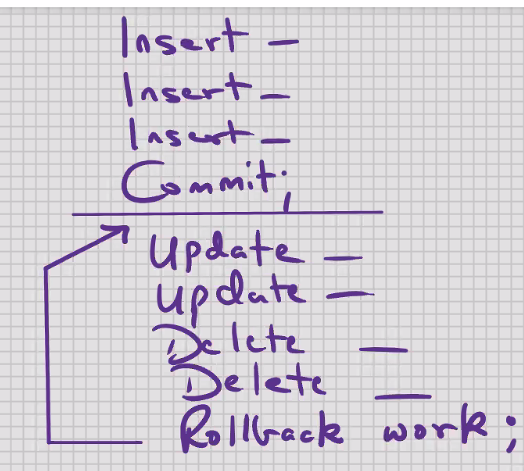 Insert –
Insert –
Insert –
Commit;
Update –
Update –
Delete –
Delete –
Rollback work;